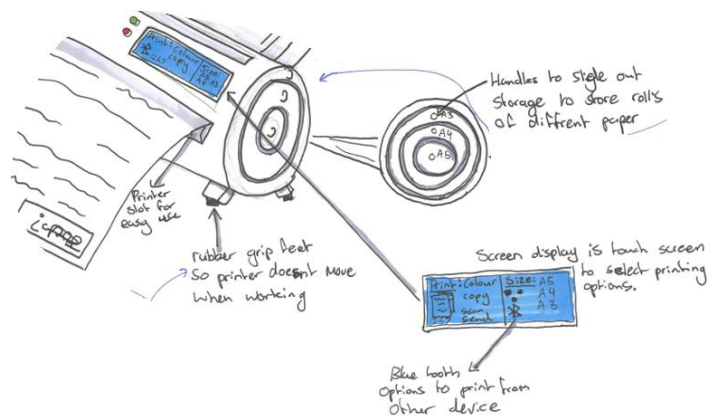 Print: Colour
copy
Size:
A5 A3
A4
Handles to slide out
storage to store rolls
of diffrent paper
A3
A4
A5
Printer
slot for
easy use
rubber grip feet
so printer doesnt move
when working
Screen display is touch screen
to select printing
options.
Print: Colour
copy
scan
Send
Size: A5
A4
A3
Blue tooth
options to print from
Other device